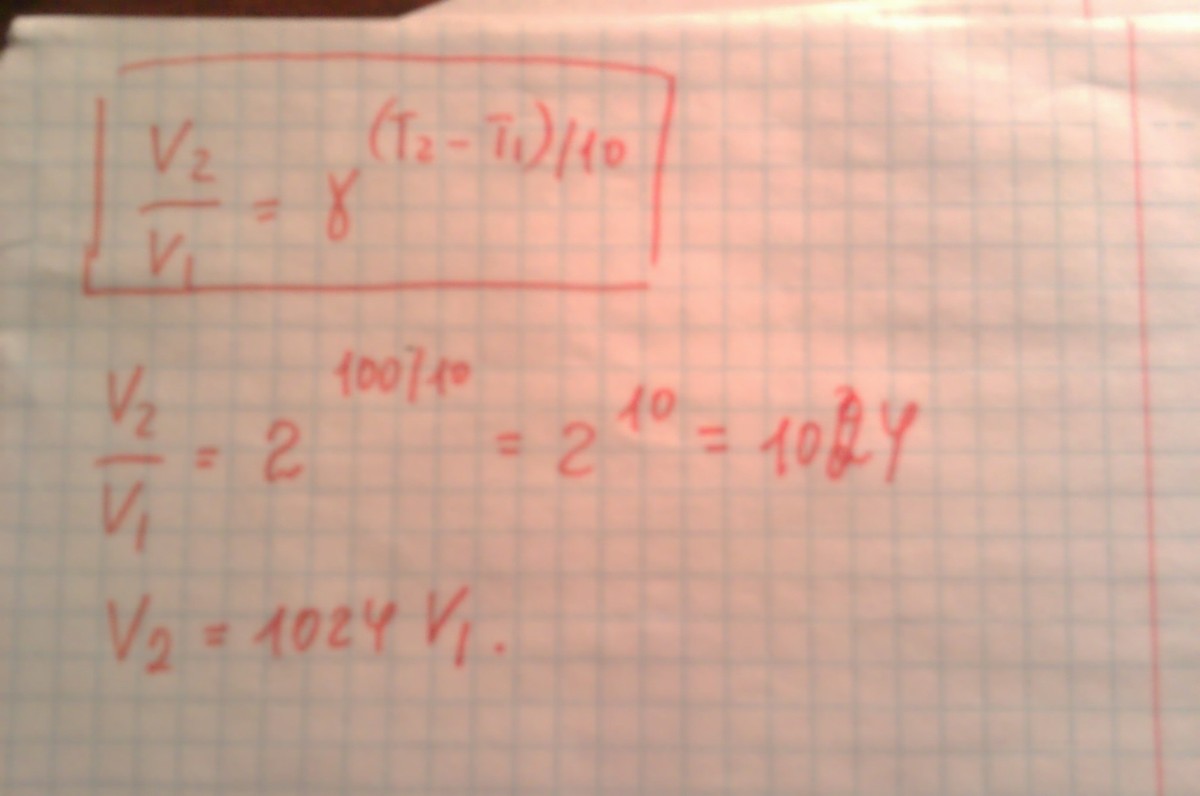 V₂/V₁ = γ^((T₂ - T₁)/10)
V₂/V₁ = 2^(100/10) = 2^10 = 1024
V₂ = 1024 V₁.